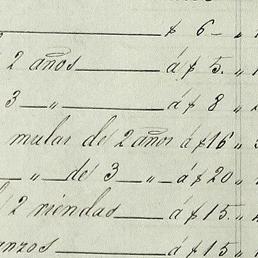 $ 6 „
2 años á $ 5. „
3 „ á $ 8 „
mulas de 2 años á $ 16 „
„ de 3 „ á $ 20 „
2 riendas á $ 15. „
á $ 15 „